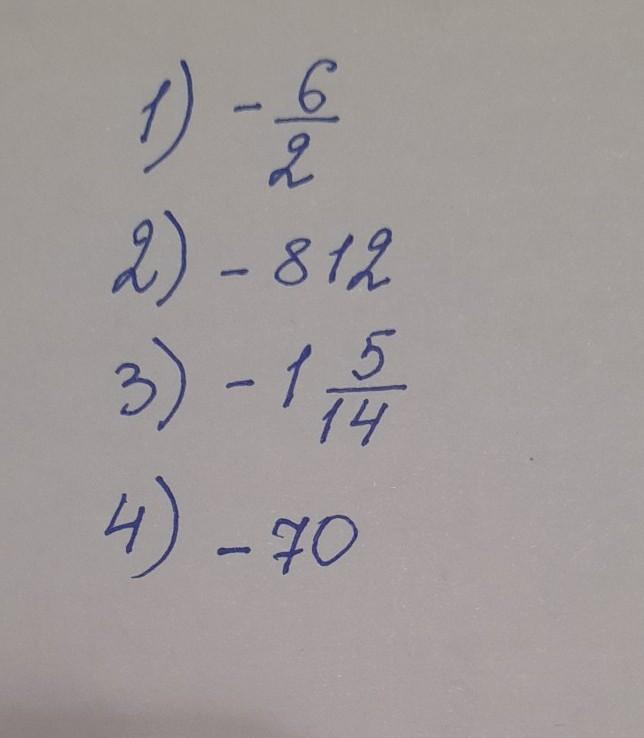 1) - 6/2
2) - 812
3) - 1 5/14
4) - 70